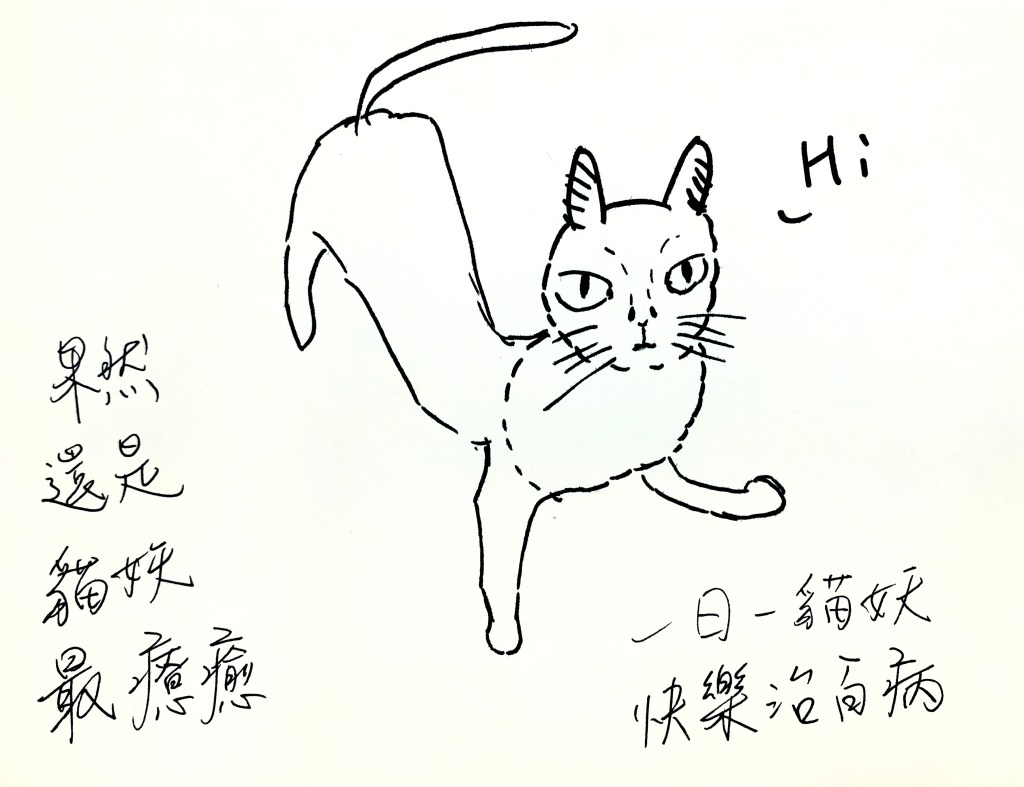 Hi
果然
還是
貓妖
最療癒
一日一貓妖
快樂治百病